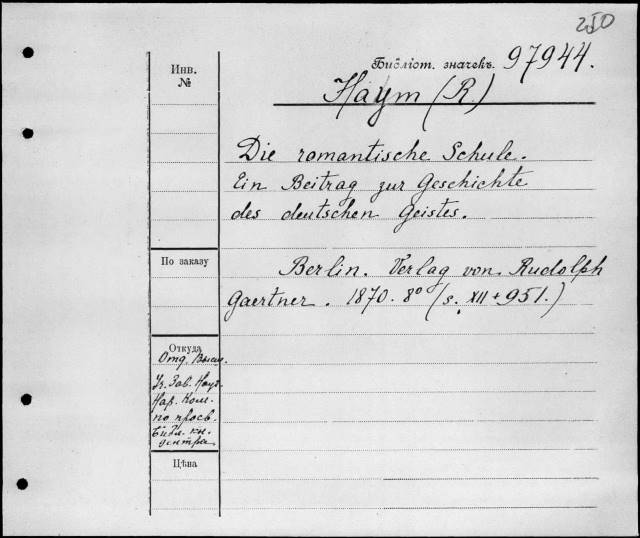 250
Инв.
№
Библіот. значекъ. 97944.
Haym (R.)
Die romantische Schule.
Ein Beitrag zur Geschichte
des deutschen Geistes.
По заказу
Berlin. Verlag von Rudolph
Gaertner. 1870. 8° (s. XII + 951.)
Откуда
Отд. Высш.
Уч. Зав. Науч.
Нар. Ком.
по просв.
Библ. кн.
центра.
Цѣна